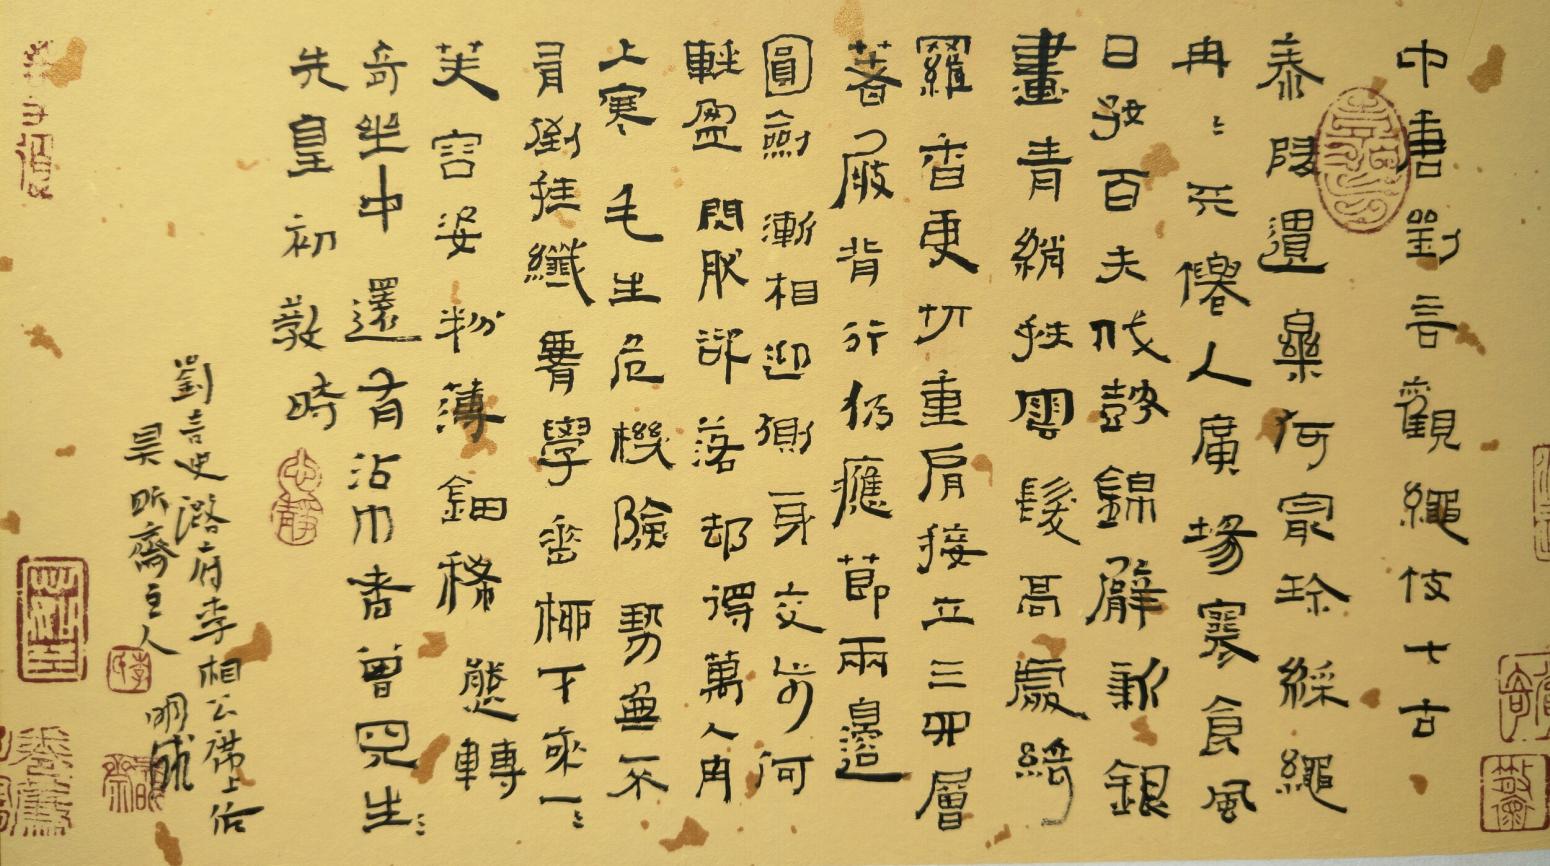 中書劉言觀繩伎七古
泰陵遺樂何最珍綵繩
冉〻天僊人廣場寒食風
日好百夫伐鼓錦臂新銀
畫青綃抹雲髮高處綺
羅香更切重肩接立三四層
著屐背行仍應節兩邊
圓劍漸相迎側身交步何
輕盈閃肰欲落却得萬人肉
上寒毛生危機險勢無不
有倒挂纖腰學垂柳下來一〻
芙容姿粉薄鈿稀態轉
奇坐中還有沾巾者曾見生〻
先皇初教時
劉言史潞府李相公席上作
昊昕齋主人 明